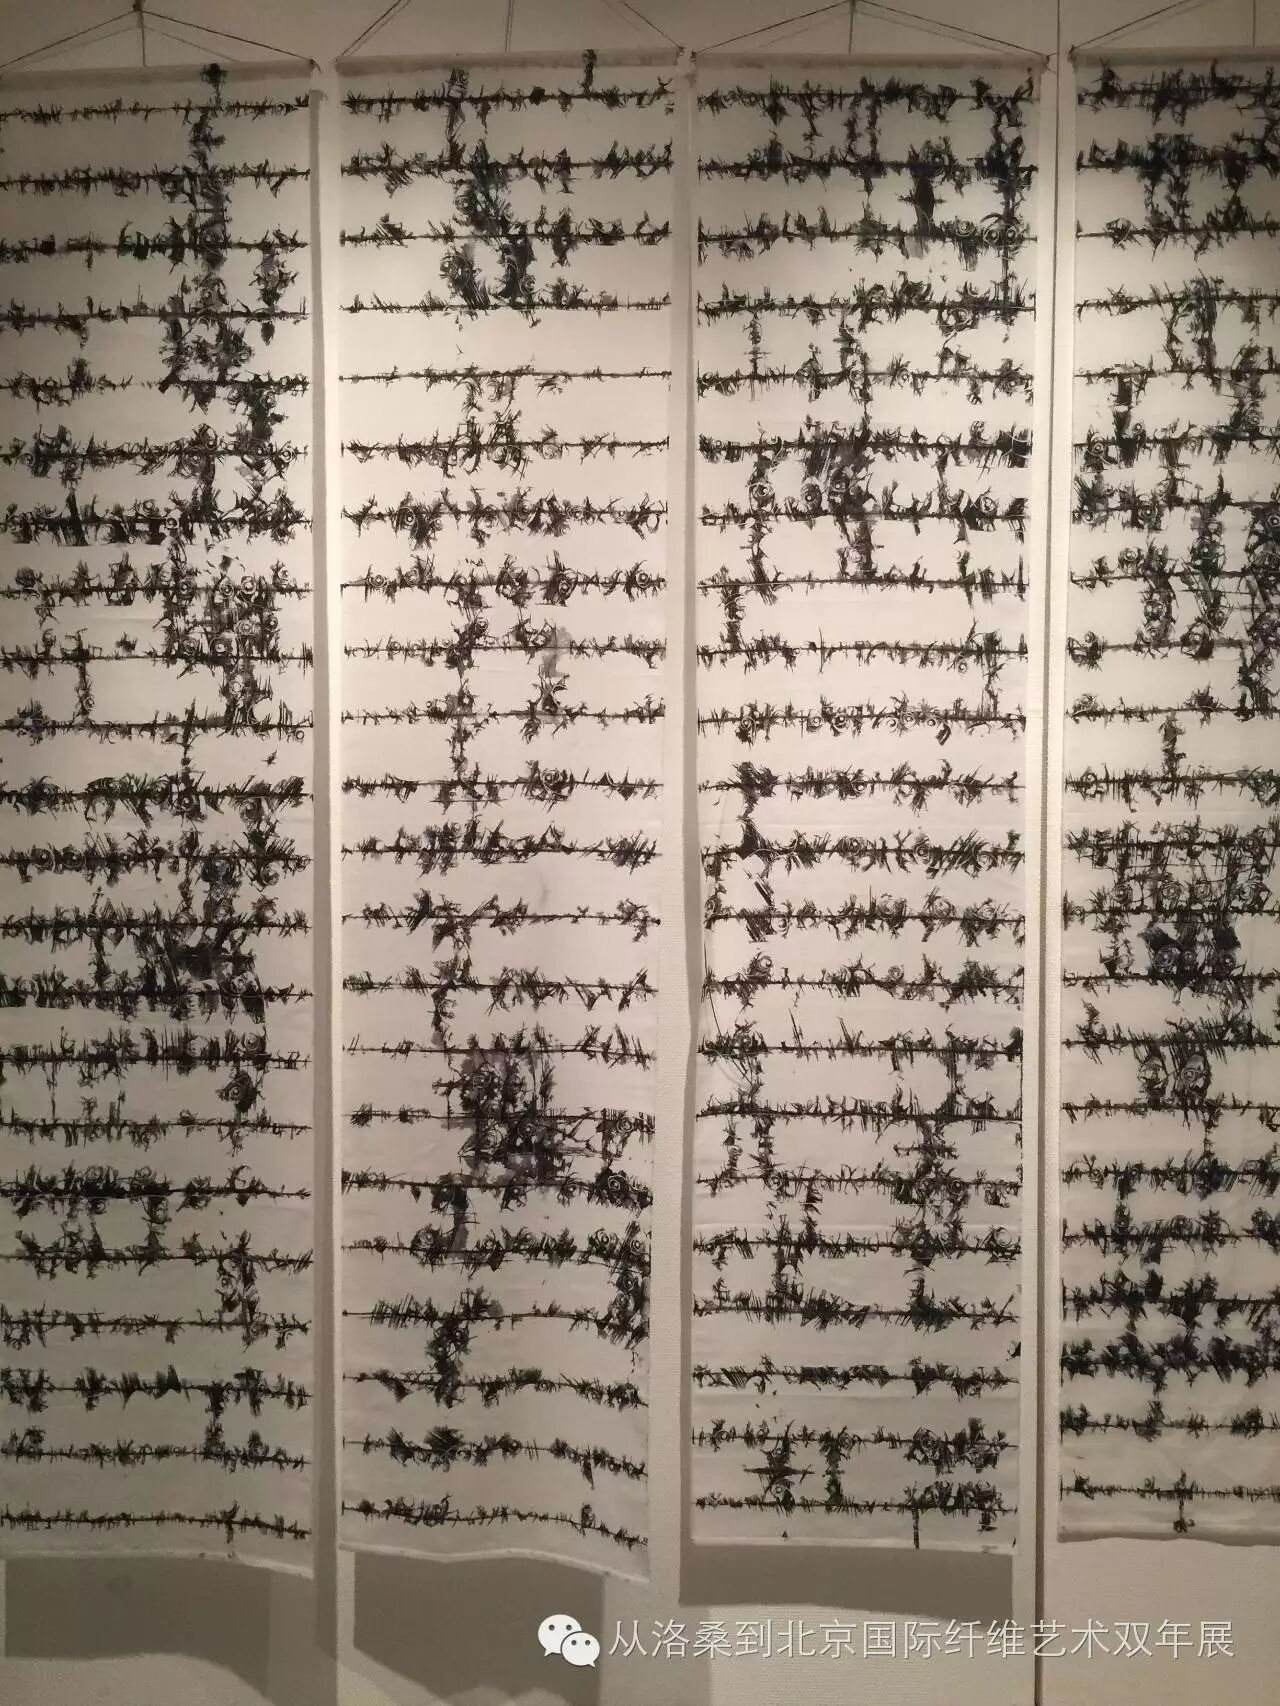 从洛桑到北京国际纤维艺术双年展